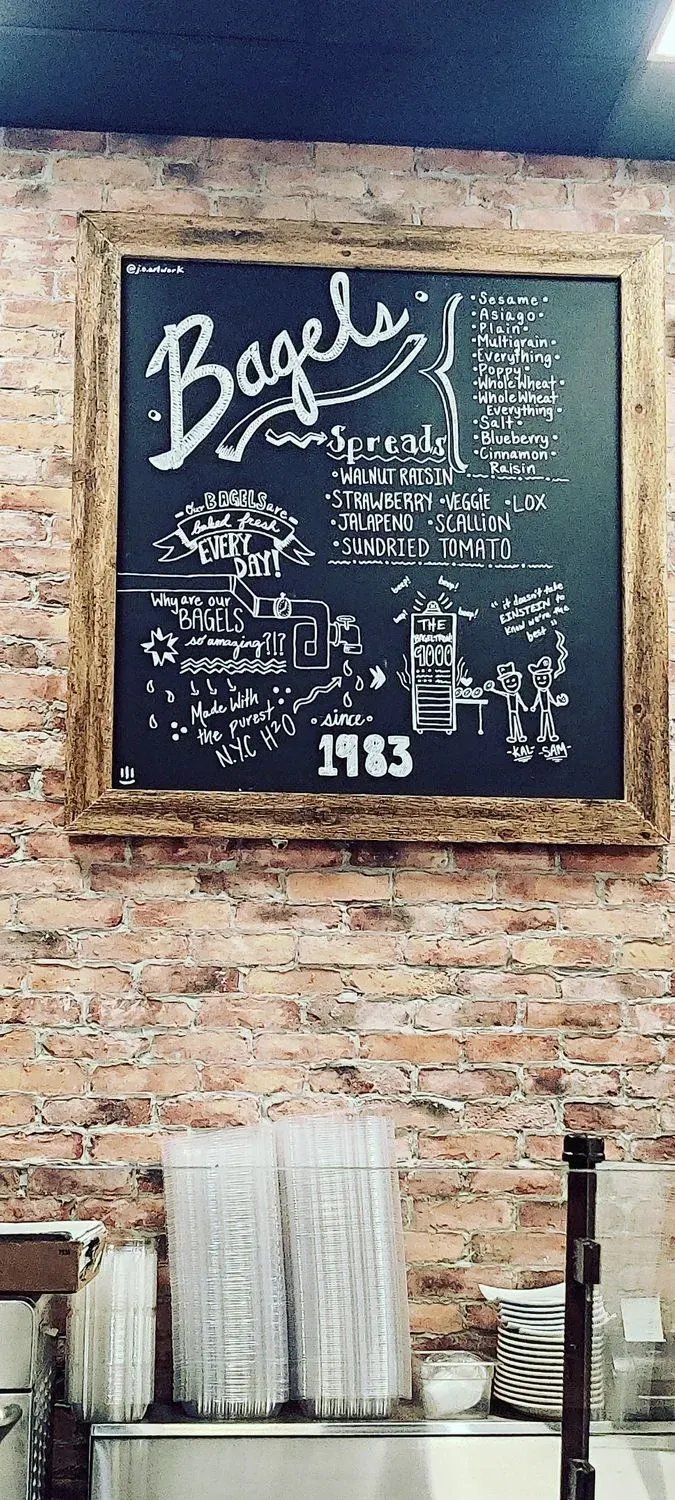 @j.o.artwork
Bagels
• Sesame •
• Asiago •
• Plain •
• Multigrain •
• Everything •
• Poppy •
• Whole Wheat •
• Whole Wheat
Everything •
• Salt •
• Blueberry •
• Cinnamon •
Raisin
Spreads
• WALNUT RAISIN
• STRAWBERRY • VEGGIE • LOX
• JALAPENO • SCALLION
• SUNDRIED TOMATO
Our BAGELS are
baked fresh
EVERY
DAY!
Why are our
BAGELS
so amazing?!?
Made With
the purest
N.Y.C H2O
• since •
1983
beep! beep!
beep!
THE
BAGELTRON
9000
"it doesn't take
EINSTEIN to
know we're the
best"
-KAL- -SAM-